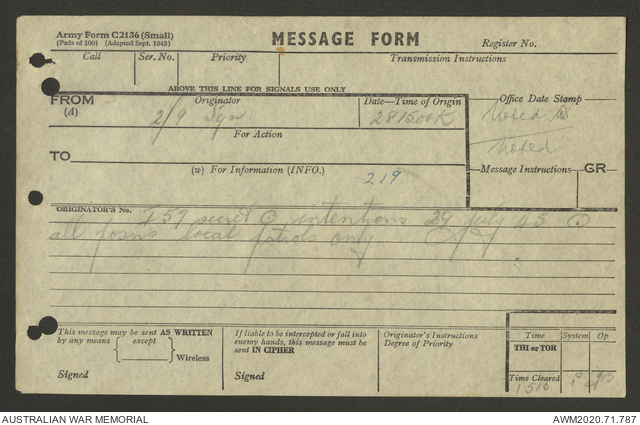 Army Form C2136 (Small)
(Pads of 100) (Adapted Sept. 1943)
MESSAGE FORM
Register No.
Call
Ser. No.
Priority
Transmission Instructions
ABOVE THIS LINE FOR SIGNALS USE ONLY
FROM
(A)
Originator
2/9
Date—Time of Origin
281500K
Office Date Stamp
Noted
Noted
For Action
TO
(w) For Information (INFO.)
219
Message Instructions
GR
ORIGINATOR'S No.
I 57 secret intentions 29 July 45
all posns local patrols only
This message may be sent AS WRITTEN
by any means
except
Wireless
Signed
If liable to be intercepted or fall into
enemy hands, this message must be
sent IN CIPHER
Signed
Originator's Instructions
Degree of Priority
Time
System
Op
THI or TOR
Time Cleared
1510
AUSTRALIAN WAR MEMORIAL
AWM2020.71.787